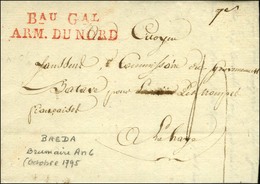 BAU GAL
ARM. DU NORD
Citoyen
Commissaire du gouvernement
Batave pour les troupes
françaises
A La haye
BREDA
Brumaire An 6
(octobre 1795